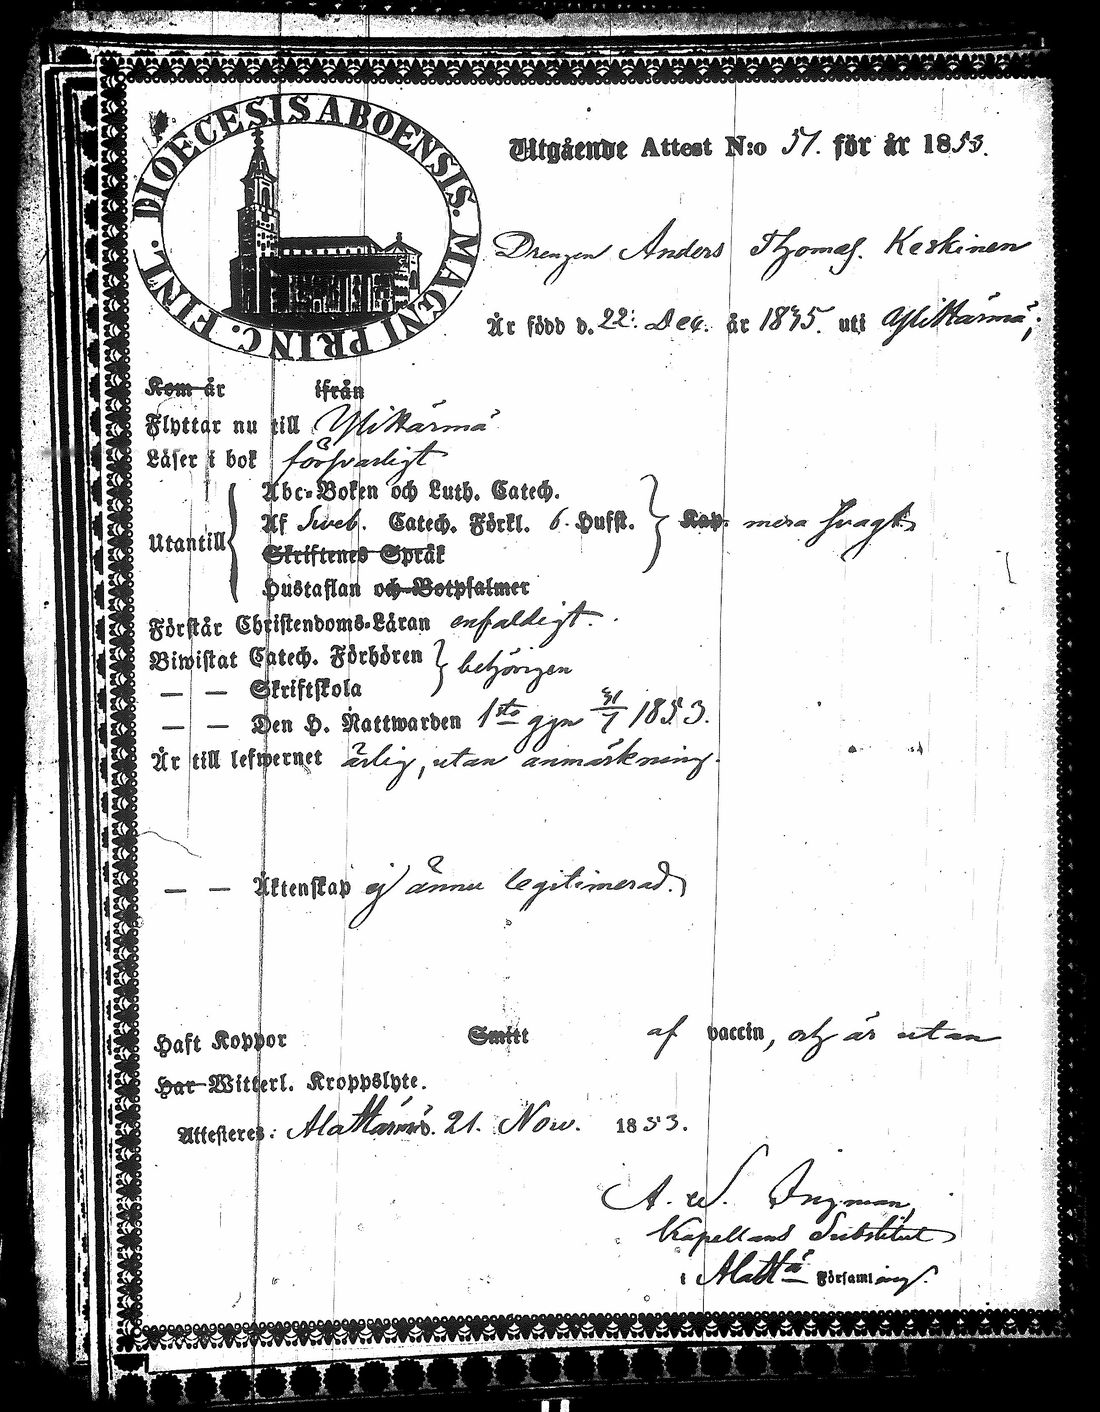 DIOECESIS ABOENSIS. MAGNI PRINC. FINL.
Utgående Attest N:o 51. för år 1853.
Drengen Anders Thomas. Keskinen
Är född d. 22: Dec. år 1835. uti Ylikärmä;
Kom år ifrån
Flyttar nu till Ylikärmä
Läser i bok försvarligt
Abc-Boken och Luth. Catech.
Utantill Af Sveb. Catech. Förkl. 6. Hufst. Kap. mera svagt
Skriftenes Språk
Hustaflan och Botpsalmer
Förstår Christendoms-Läran enfaldigt.
Biwistat Catech. Förhören behörigen
— — Skriftskola
— — Den H. Nattwarden 1sta ggn 31/7 1853.
Är till lefwernet ärlig, utan anmärkning.
— — Äktenskap ej ännu legitimerad.
Haft Koppor Smitt af vaccin, och är utan
Har Witterl. Kroppslyte.
Attesteres: 21. Nov. 1853.
A. W. Ingman,
Kapellans Substitut
i Församling.